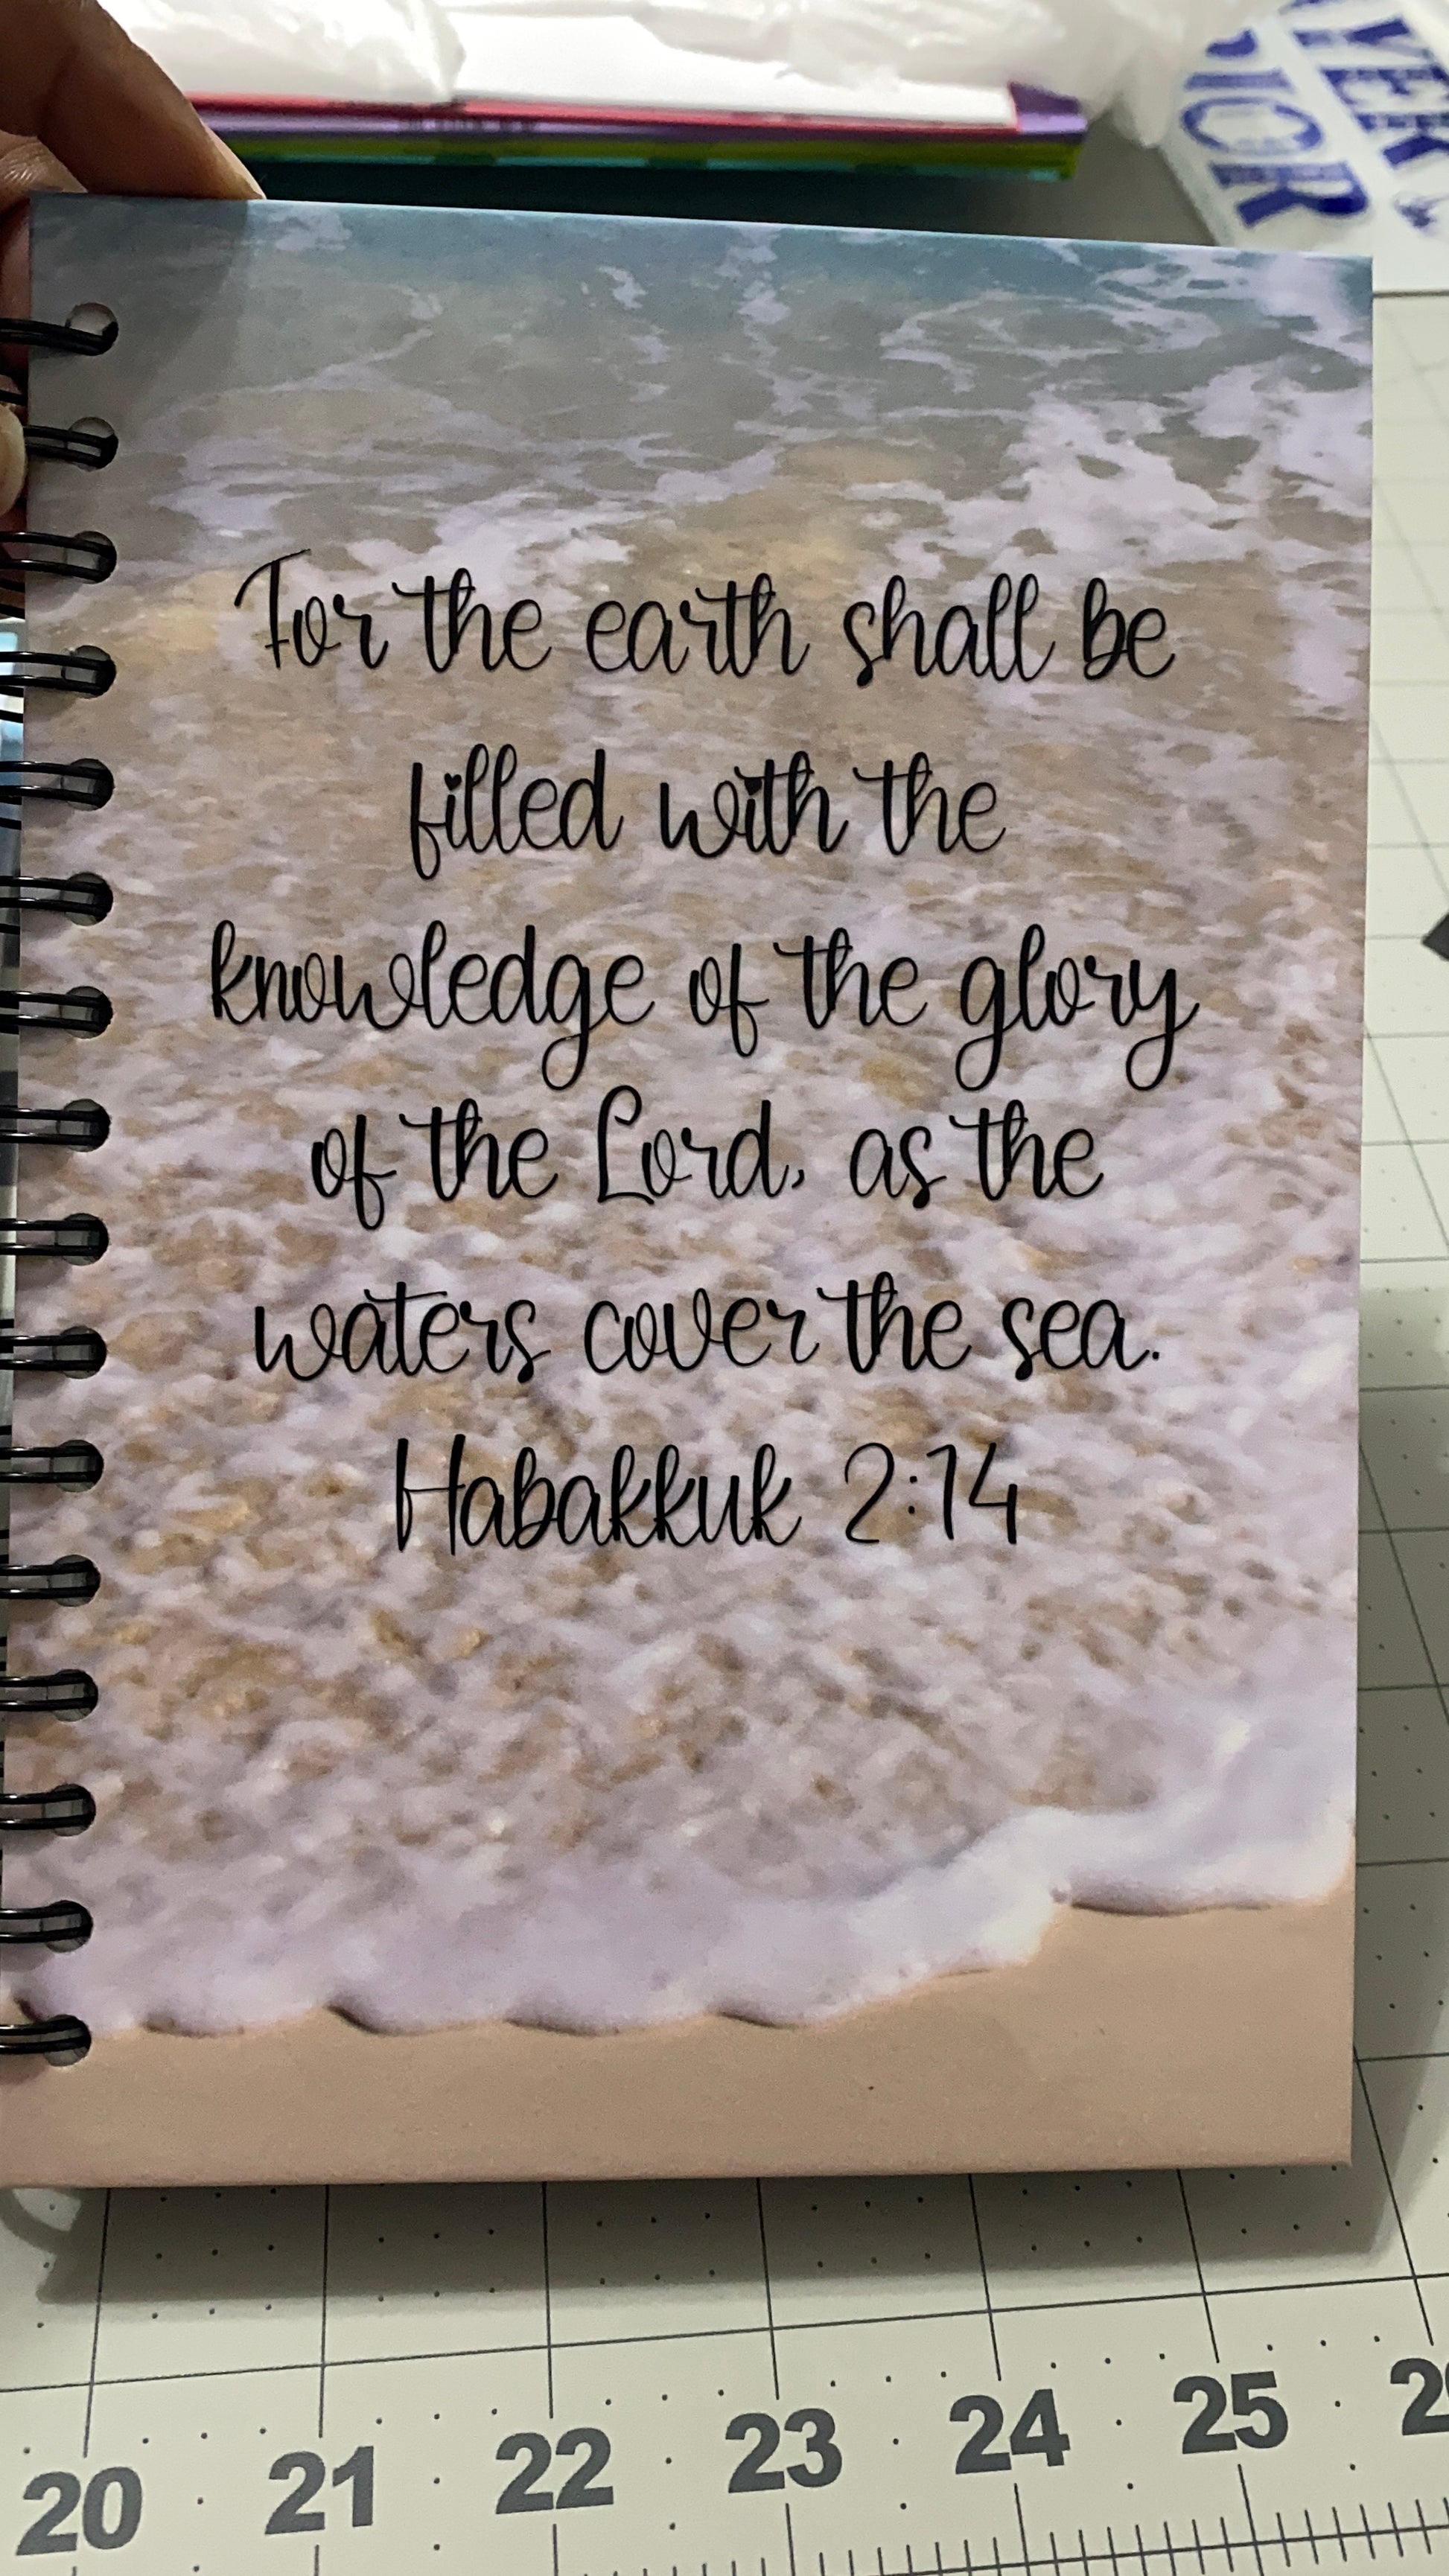 For the earth shall be
filled with the
knowledge of the glory
of the Lord, as the
waters cover the sea.
Habakkuk 2:14
20 21 22 23 24 25